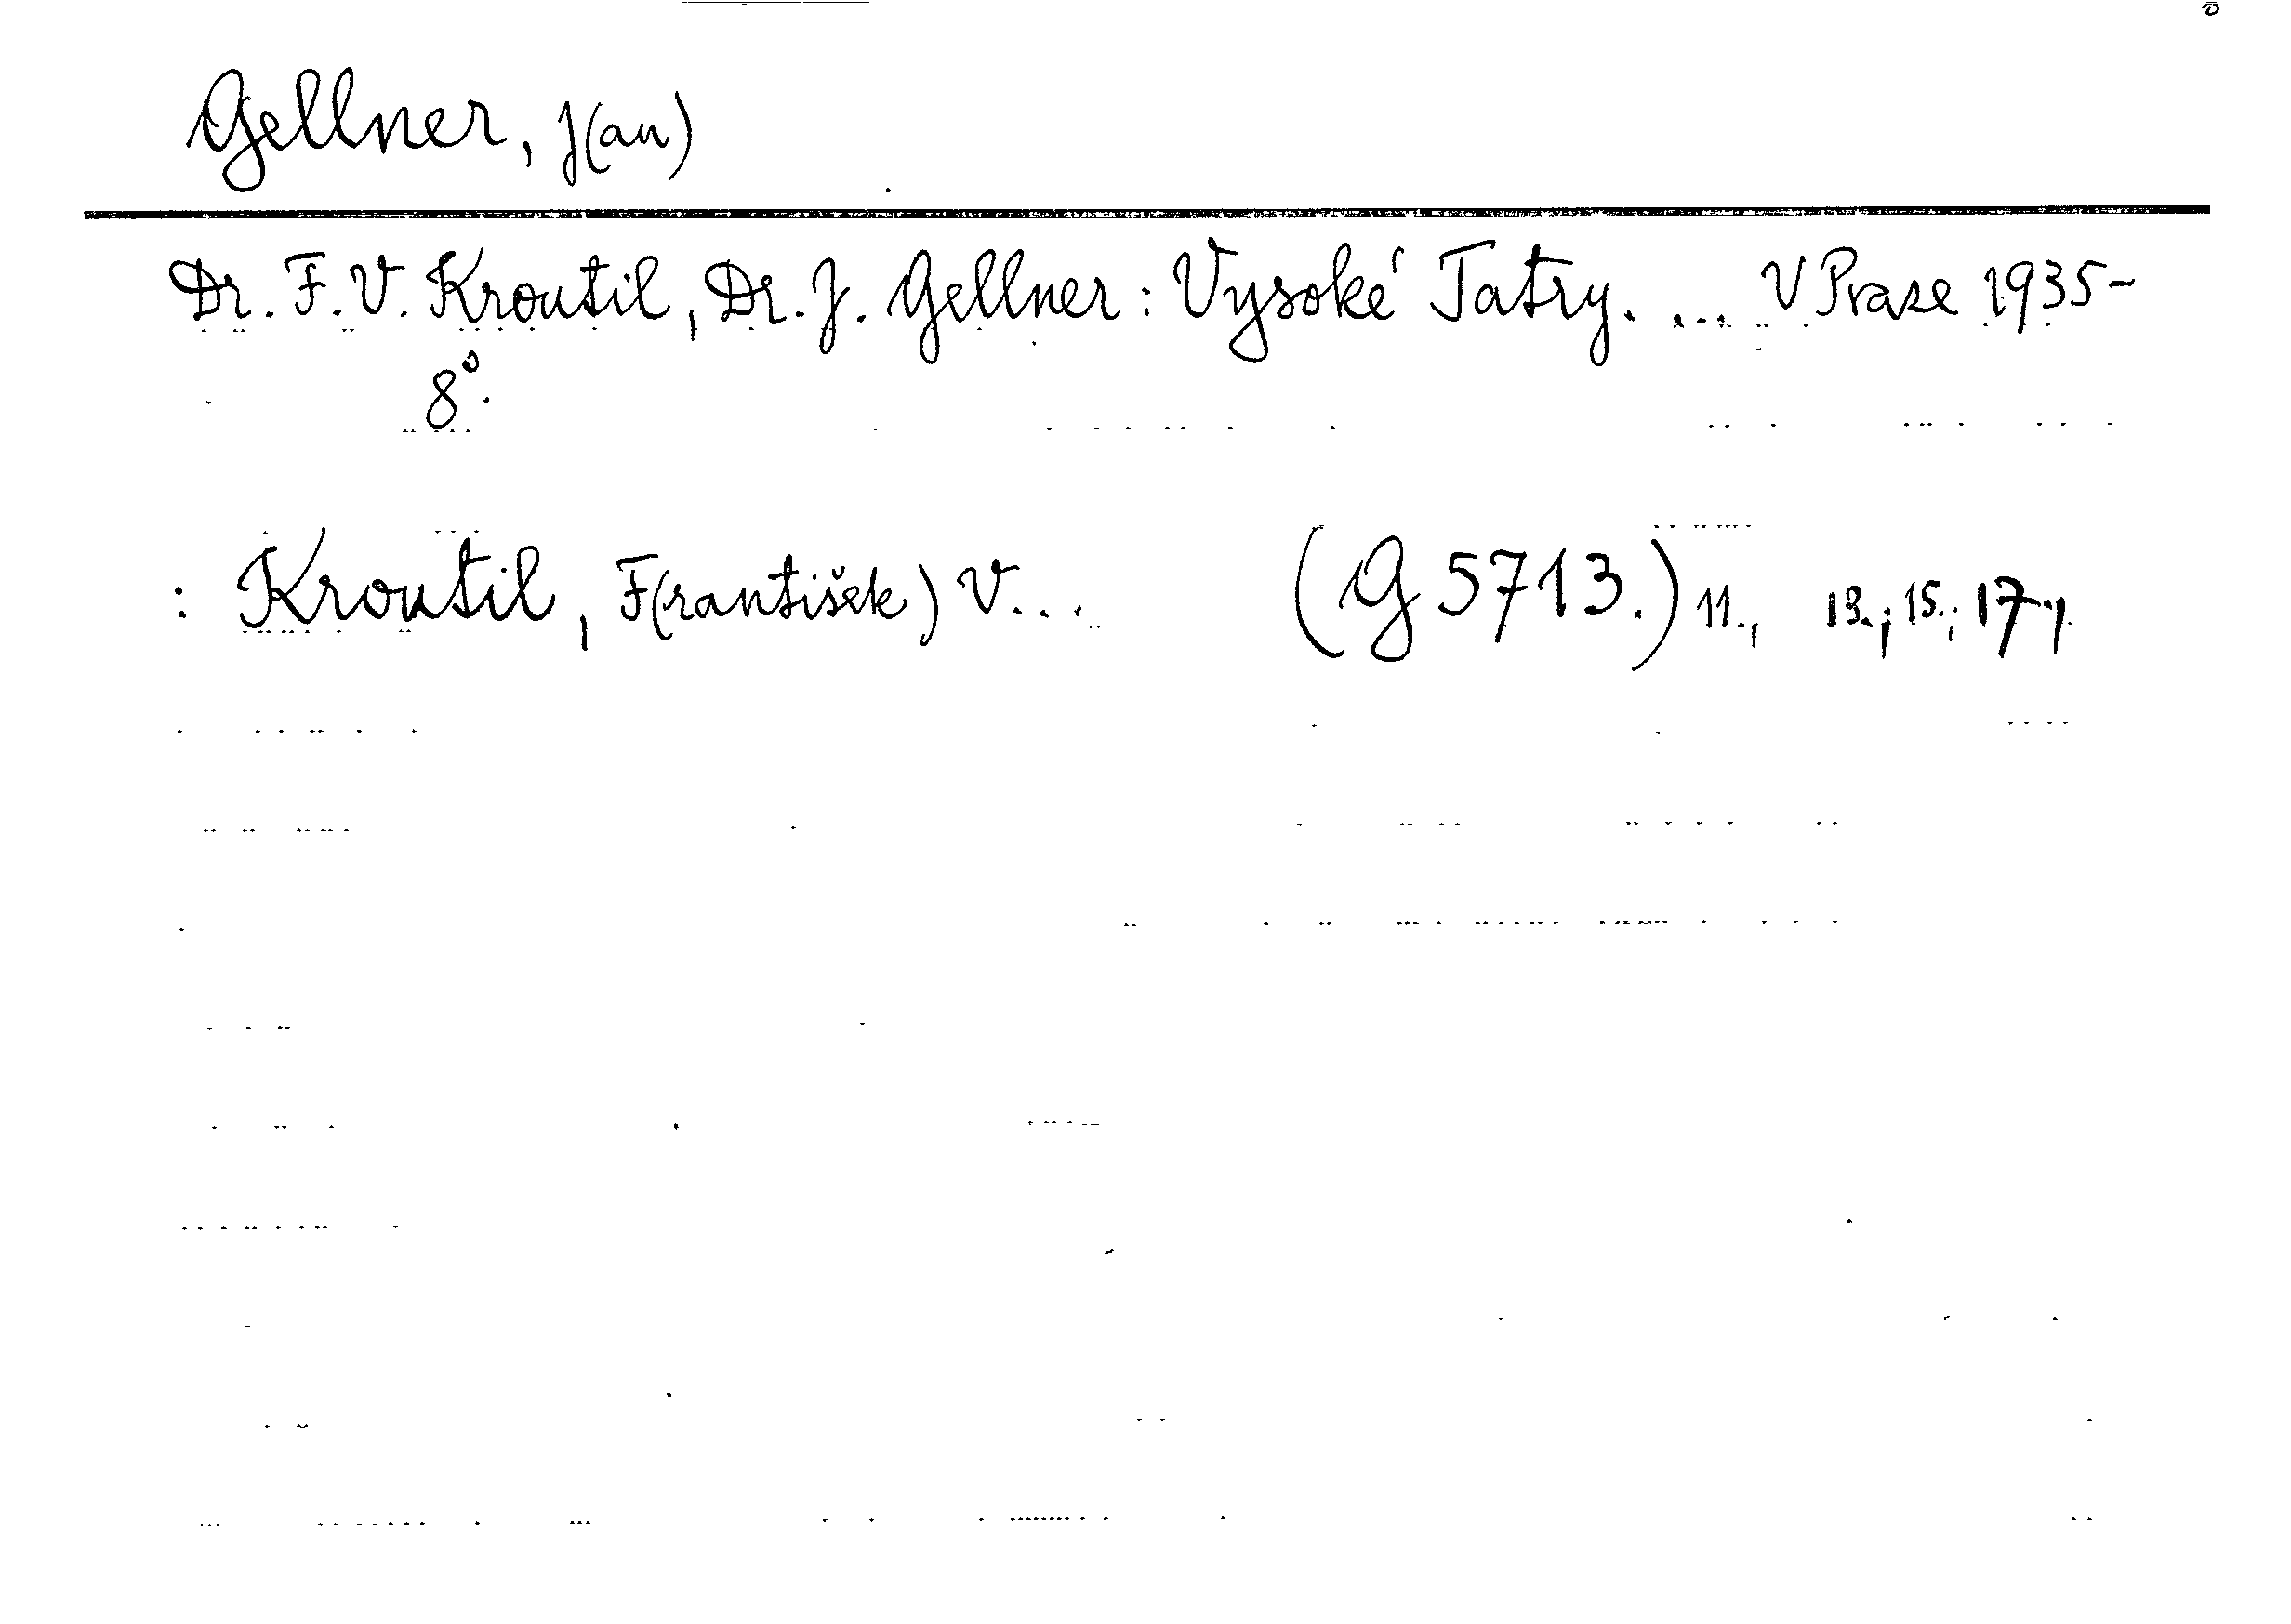 Gellner, J(an)
Dr. F. V. Kroutil, Dr. J. Gellner: Vysoké Tatry. ... V Praze 1935-
8°.
: Kroutil, F(rantišek) V... (G 5713.) 11., 13.; 15.; 17.,